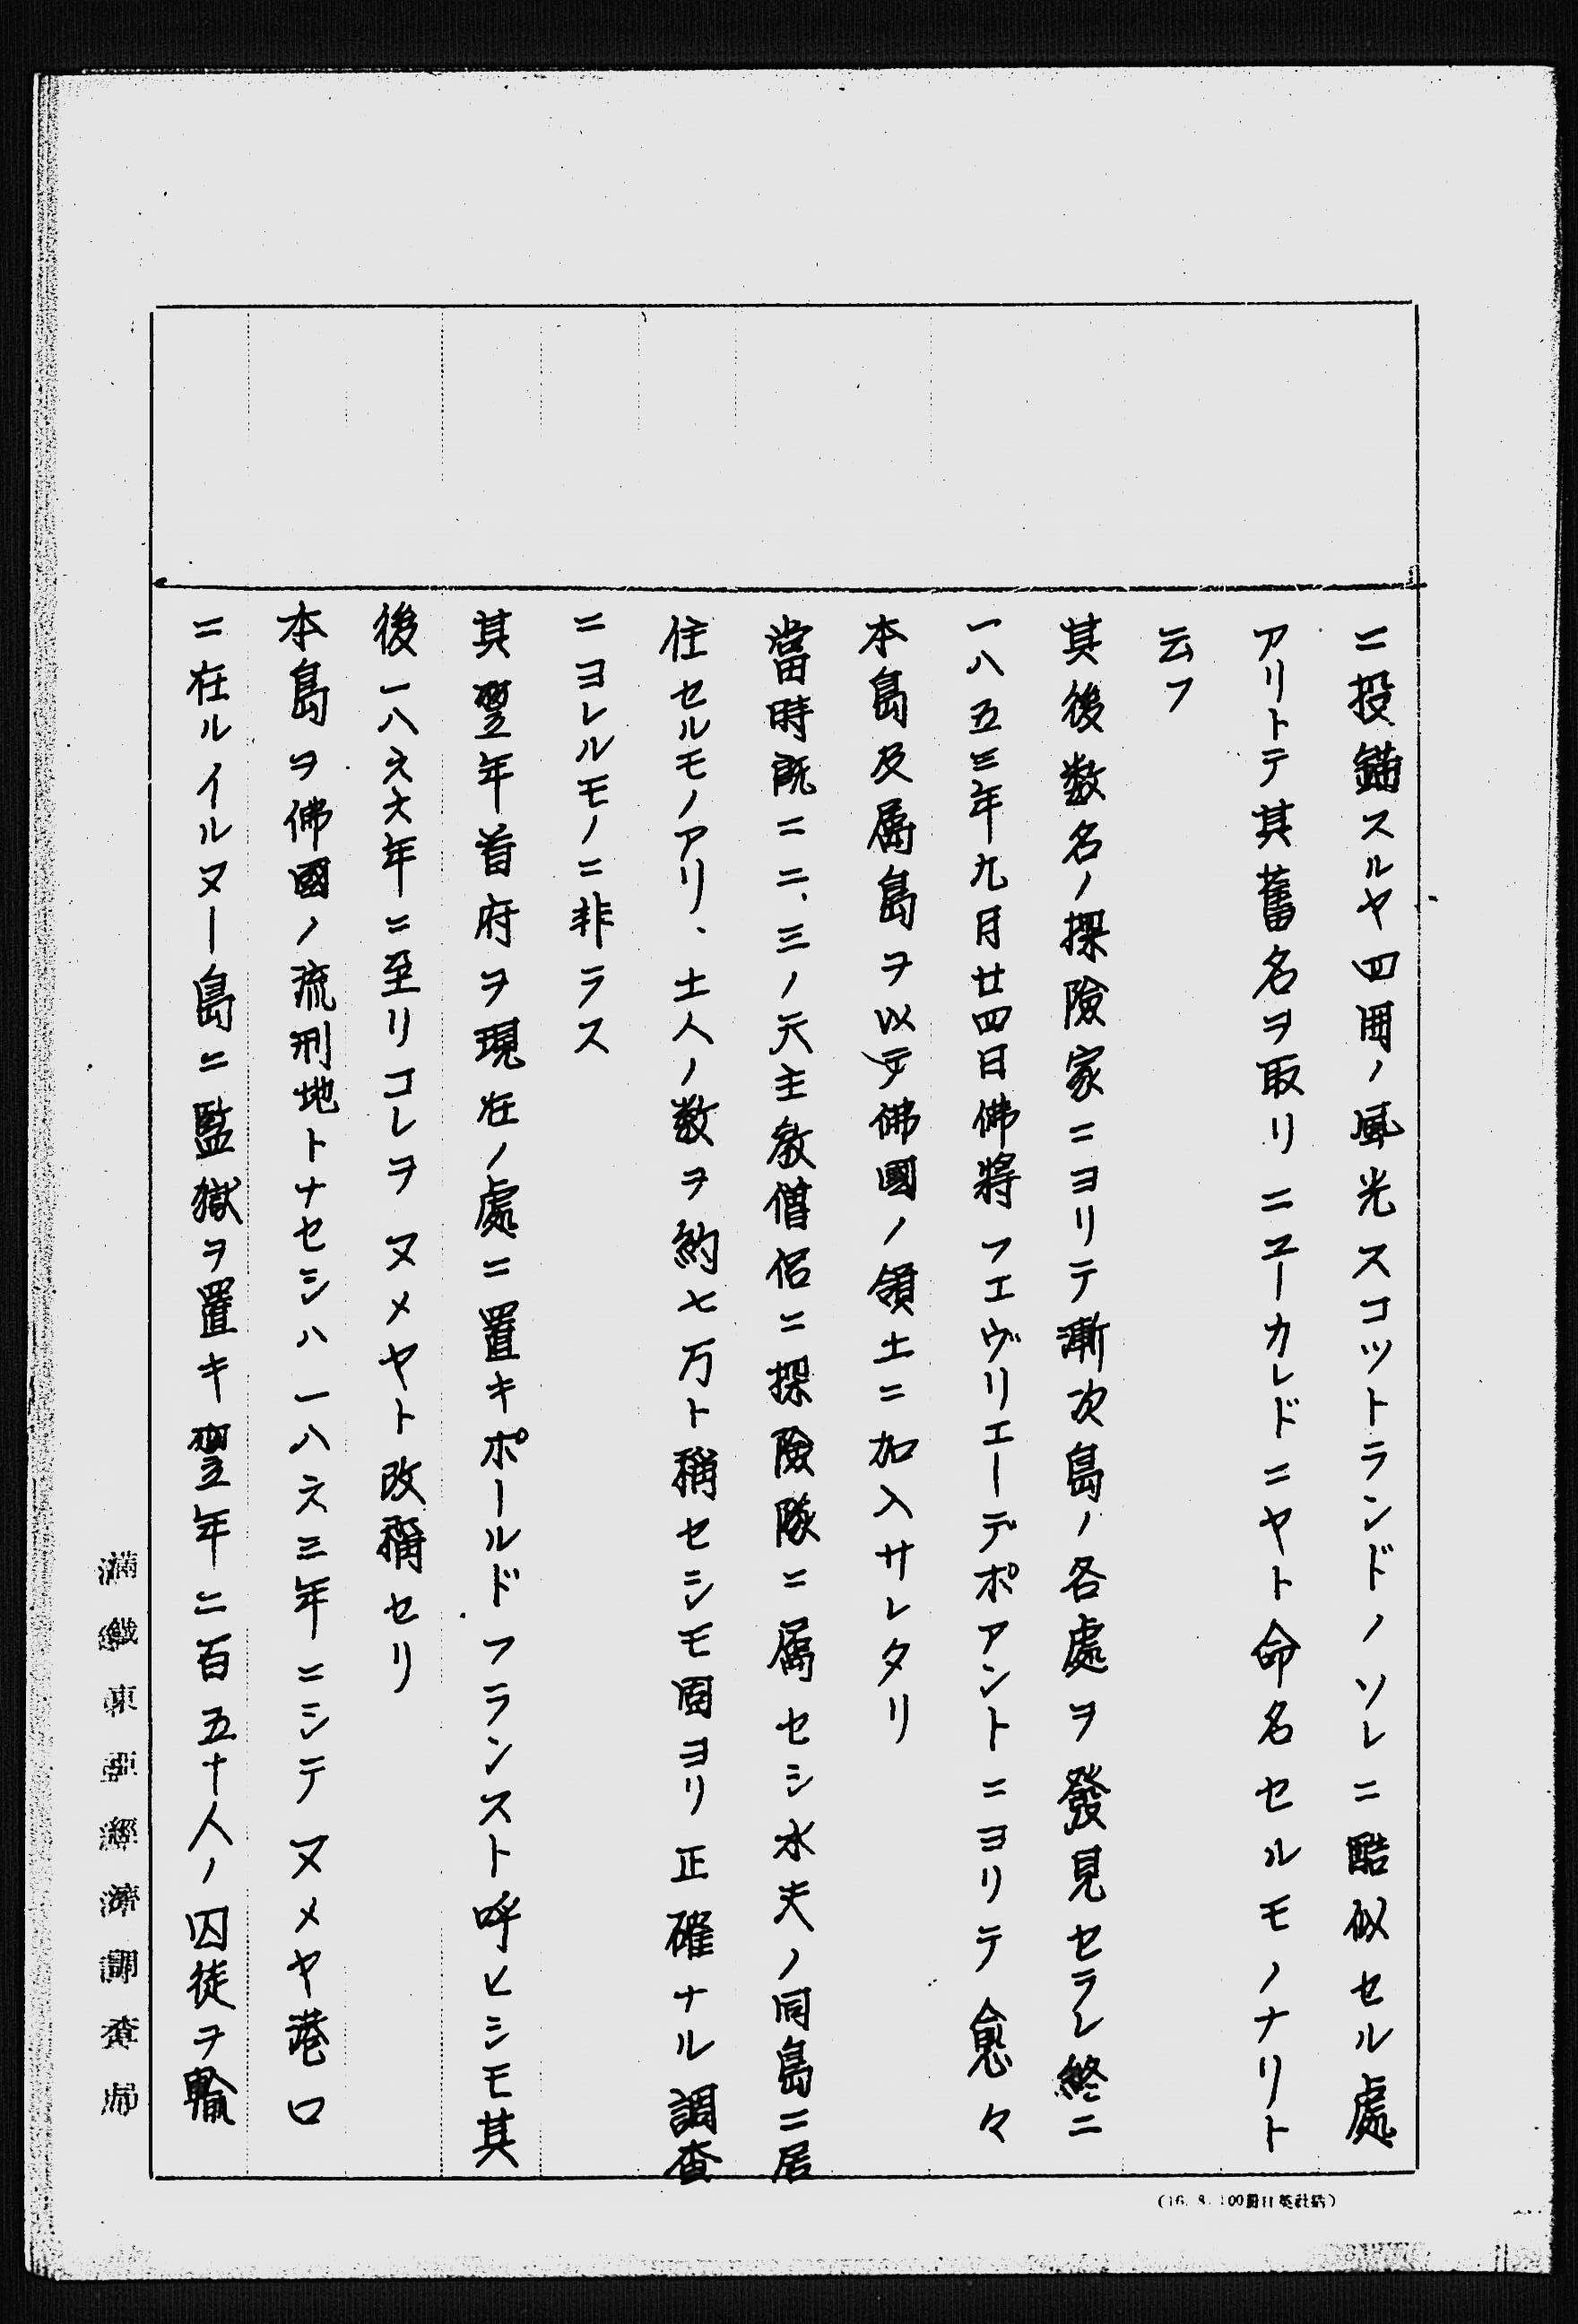 ニ投錨スルヤ四囲ノ風光スコットランドノソレニ酷似セル處
アリトテ其舊名ヲ取リニユーカレドニヤト命名セルモノナリト
云フ
其後数名ノ探險家ニヨリテ漸次島ノ各處ヲ發見セラレ終ニ
一八五三年九月廿四日佛將フエヴリエーデポアントニヨリテ愈々
本島及属島ヲ以テ佛國ノ領土ニ加入サレタリ
當時既ニ二、三ノ天主教僧侶ニ探險隊ニ属セシ水夫ノ同島ニ居
住セルモノアリ、土人ノ数ヲ約七万ト稱セシモ固ヨリ正確ナル調査
ニヨレルモノニ非ラス
其翌年首府ヲ現在ノ處ニ置キポールドフランスト呼ヒシモ其
後一八六六年ニ至リコレヲヌメヤト改稱セリ
本島ヲ佛國ノ流刑地トナセシハ一八六三年ニシテヌメヤ港口
ニ在ルイルヌー島ニ監獄ヲ置キ翌年ニ百五十人ノ囚徒ヲ輸
滿鐵東亞經濟調査局
(16. 8. 100冊日英社納)